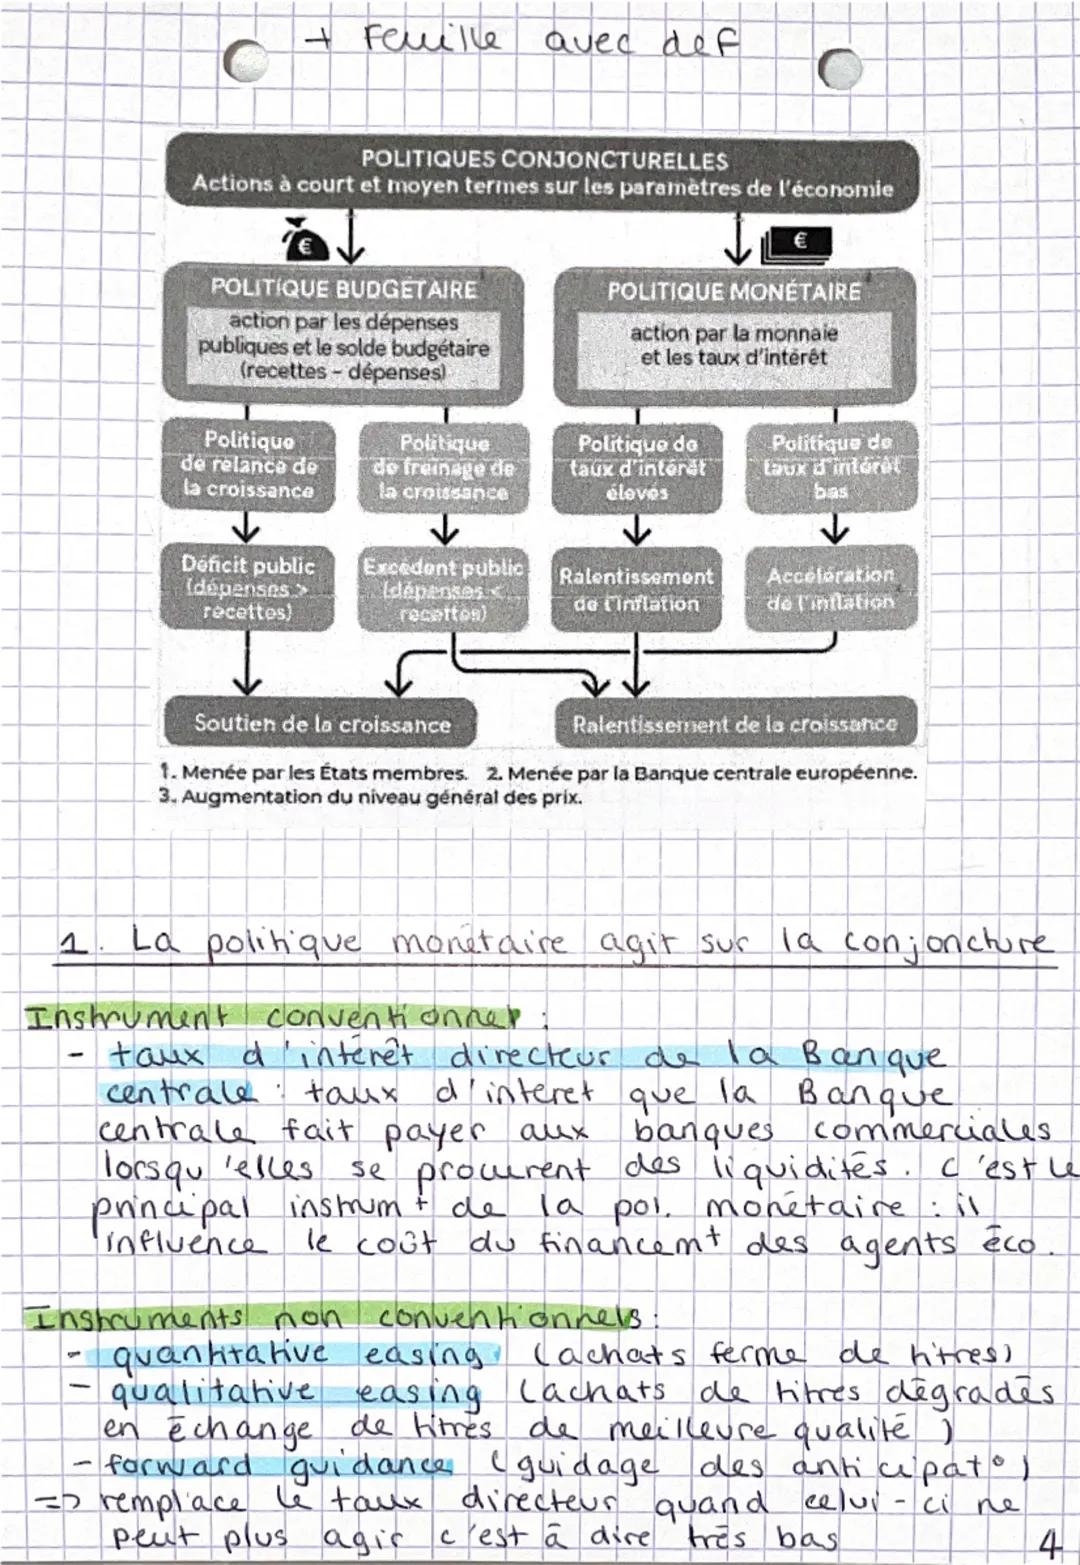 + Feuille avec def
POLITIQUES CONJONCTURELLES
Actions à court et moyen termes sur les paramètres de l'économie
€
€
POLITIQUE BUDGÉTAIRE
action par les dépenses
publiques et le solde budgétaire
(recettes - dépenses)
POLITIQUE MONÉTAIRE
action par la monnaie
et les taux d'intérêt
Politique
de relance de
la croissance
Politique
de freinage de
la croissance
Politique de
taux d'intérêt
élevés
Politique de
taux d'intérêt
bas
Déficit public
(dépenses >
recettes)
Excédent public
(dépenses <
recettes)
Ralentissement
de l'inflation
Accélération
de l'inflation
Soutien de la croissance
Ralentissement de la croissance
1. Menée par les États membres. 2. Menée par la Banque centrale européenne.
3. Augmentation du niveau général des prix.
1. La politique monétaire agit sur la conjoncture
Instrument conventionnel :
- taux d'intérêt directeur de la Banque
centrale : taux d'intéret que la Banque
centrale fait payer aux banques commerciales
lorsqu'elles se procurent des liquidités. C'est le
principal instrumt de la pol. monétaire : il
influence le coût du financemt des agents éco.
Instruments non conventionnels :
- quantitative easing (achats ferme de titres)
- qualitative easing (achats de titres dégradés
en échange de titres de meilleure qualité)
- forward guidance (guidage des anticipat°)
=> remplace le taux directeur quand celui-ci ne
peut plus agir c'est à dire très bas
4